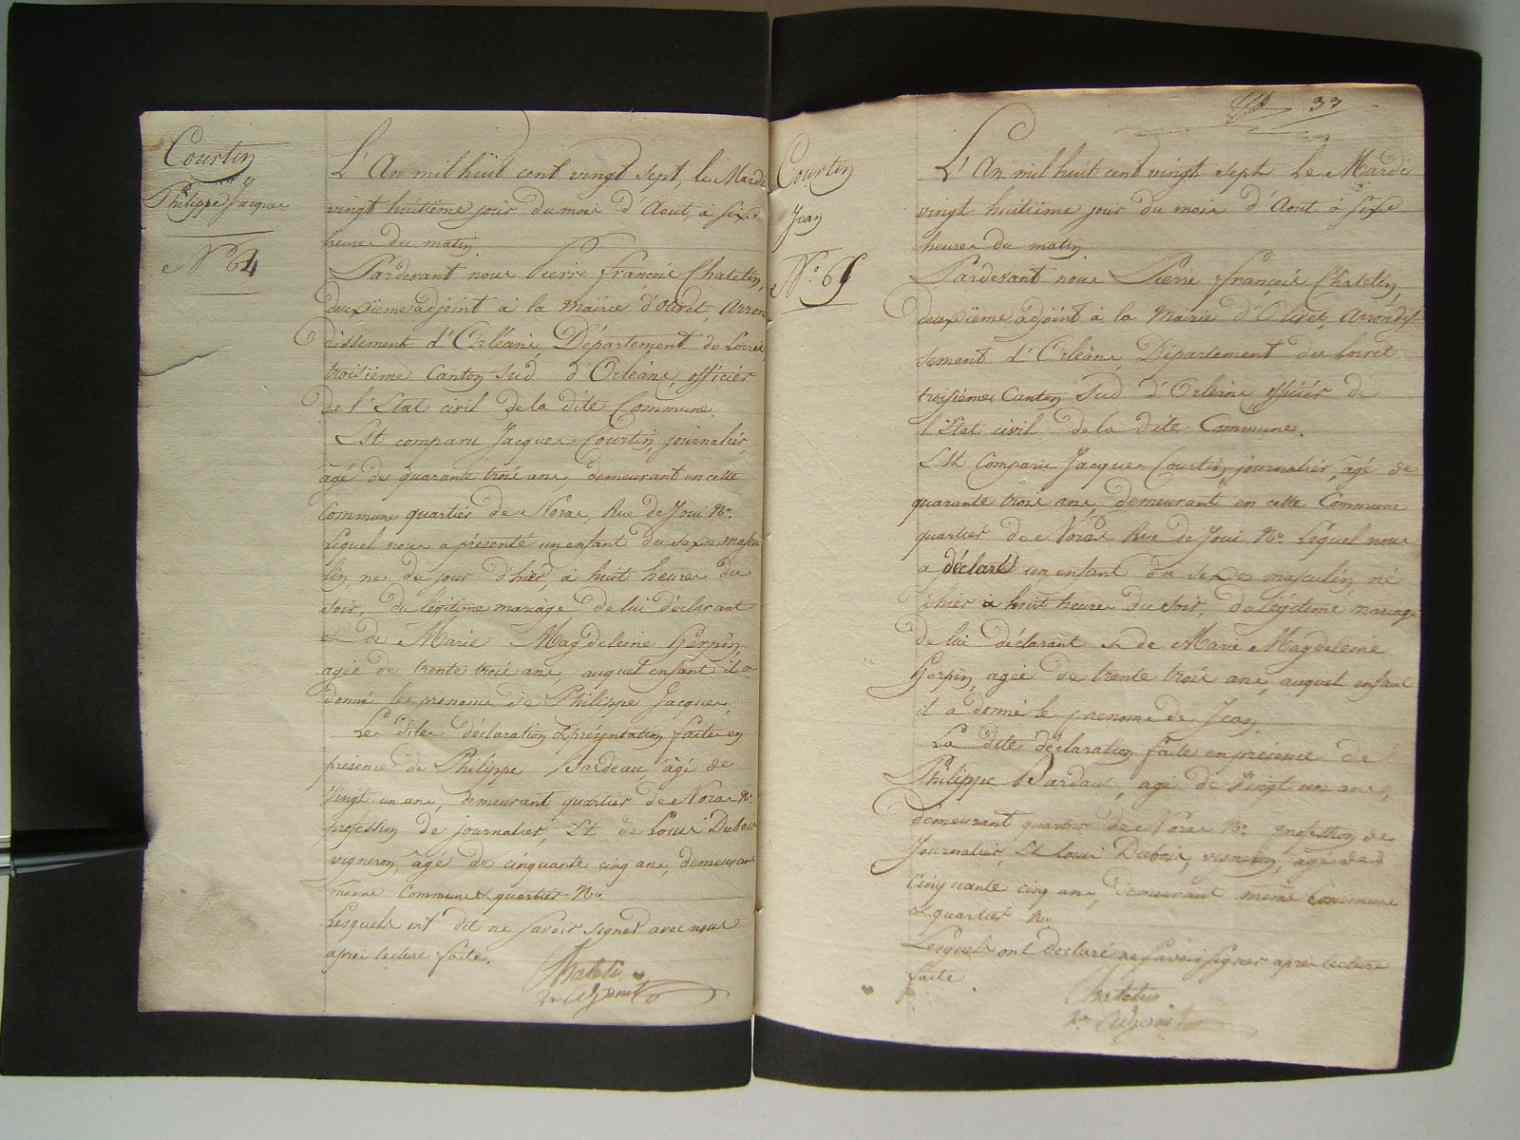 Courtin
Philippe Jacques
N° 64
L'An mil huit cent vingt sept, le Mardi
vingt huitième jour du mois d'Aout, à six
heures du matin
Pardevant nous Pierre françois Chatelin,
deuxième adjoint à la Mairie d'olivet, Arron
dissement d'Orléans Département du Loiret,
troisième Canton Sud d'Orléans, officier
de l'Etat civil de la dite Commune.
Est comparu Jacques Courtin, journalier,
âgé de quarante trois ans demeurant en cette
Commune quartier de Noras, Rue de Joui N°.
lequel nous a présenté un enfant du sexe mascu
lin né de jour d'hier, à huit heures du
soir, du légitime mariage de lui déclarant
& de Marie Magdeleine Herpin,
agée de trente trois ans, auquel enfant il a
donné les prenoms de Philippe Jacques,
Les dites déclaration & présentation faites en
presence de Philippe Bardeau, âgé de
vingt un ans, demeurant quartier de Noras N°.
profession de journalier, Et de Louis Dubois
vigneron, âgé de cinquante cinq ans, demeurant
même Commune & quartier N°.
Lesquels ont dit ne savoir signer avec nous
après lecture faite.
Chatelin
2e Adjoint
33
Courtin
Jean
N° 65
L'An mil huit cent vingt sept Le Mardi
vingt huitième jour du mois d'Aout à six
heures du matin
Pardevant nous Pierre françois Chatelin,
deuxième adjoint à la Mairie d'Olivet, Arrondis
sement d'Orléans, Département du Loiret
troisième Canton Sud d'Orléans officier de
l'Etat civil de la dite Commune.
Est Comparu Jacques Courtin, journalier, âgé de
quarante trois ans, demeurant en cette Commune
quartier de Noras Rue de Joui N°. Lequel nous
a déclaré un enfant du sexe masculin, né
d'hier à huit heures du soir, du légitime mariage
de lui déclarant & de Marie Magdeleine
Herpin, agée de trente trois ans, auquel enfant
il a donné le prenoms de Jean
La dite déclaration faite en présence de
Philippe Bardau, agé de Vingt un ans,
demeurant quartier de Noras N°. profession de
Journalier, Et Louis Dubois, vigneron, âgé de
Cinquante cinq ans, demeurant même Commune
& quartier N°.
Lesquels ont déclaré ne savoir signer après lecture
faite.
Chatelin
2e Adjoint